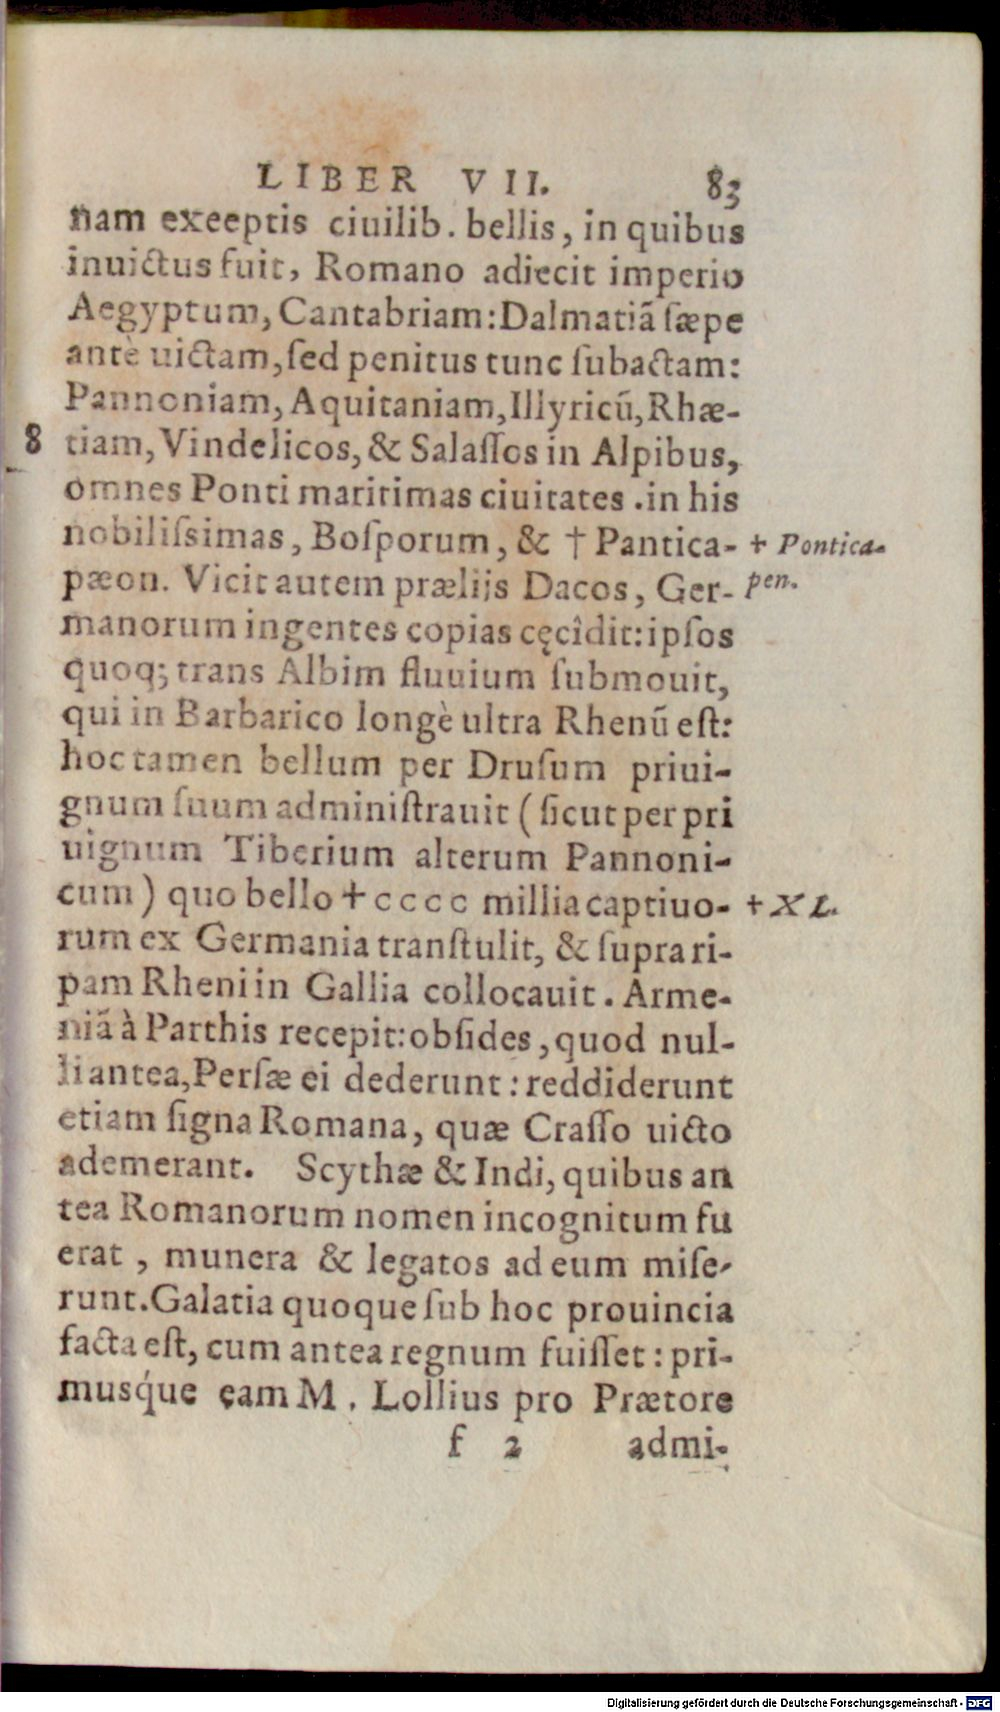 LIBER VII. 83
nam exeeptis ciuilib. bellis, in quibus
inuictus fuit, Romano adiecit imperio
Aegyptum, Cantabriam: Dalmatiã ſæpe
antè uictam, ſed penitus tunc ſubactam:
Pannoniam, Aquitaniam, Illyricũ, Rhæ-
8 tiam, Vindelicos, & Salaſſos in Alpibus,
omnes Ponti maritimas ciuitates .in his
nobiliſsimas, Boſporum, & † Pantica- + Pontica-
pæon. Vicit autem prælijs Dacos, Ger- pen.
manorum ingentes copias cęcîdit: ipſos
quoq; trans Albim fluuium ſubmouit,
qui in Barbarico longè ultra Rhenũ eſt:
hoc tamen bellum per Druſum priui-
gnum ſuum adminiſtrauit (ſicut per pri
uignum Tiberium alterum Pannoni-
cum) quo bello + cccc millia captiuo- + XL.
rum ex Germania tranſtulit, & ſupra ri-
pam Rheni in Gallia collocauit. Arme-
niã à Parthis recepit: obſides, quod nul-
li antea, Perſæ ei dederunt: reddiderunt
etiam ſigna Romana, quæ Craſſo uicto
ademerant. Scythæ & Indi, quibus an
tea Romanorum nomen incognitum fu
erat, munera & legatos ad eum miſe-
runt. Galatia quoque ſub hoc prouincia
facta eſt, cum antea regnum fuiſſet: pri-
musq́ue eam M. Lollius pro Prætore
f 2 admi-
Digitalisierung gefördert durch die Deutsche Forschungsgemeinschaft - DFG